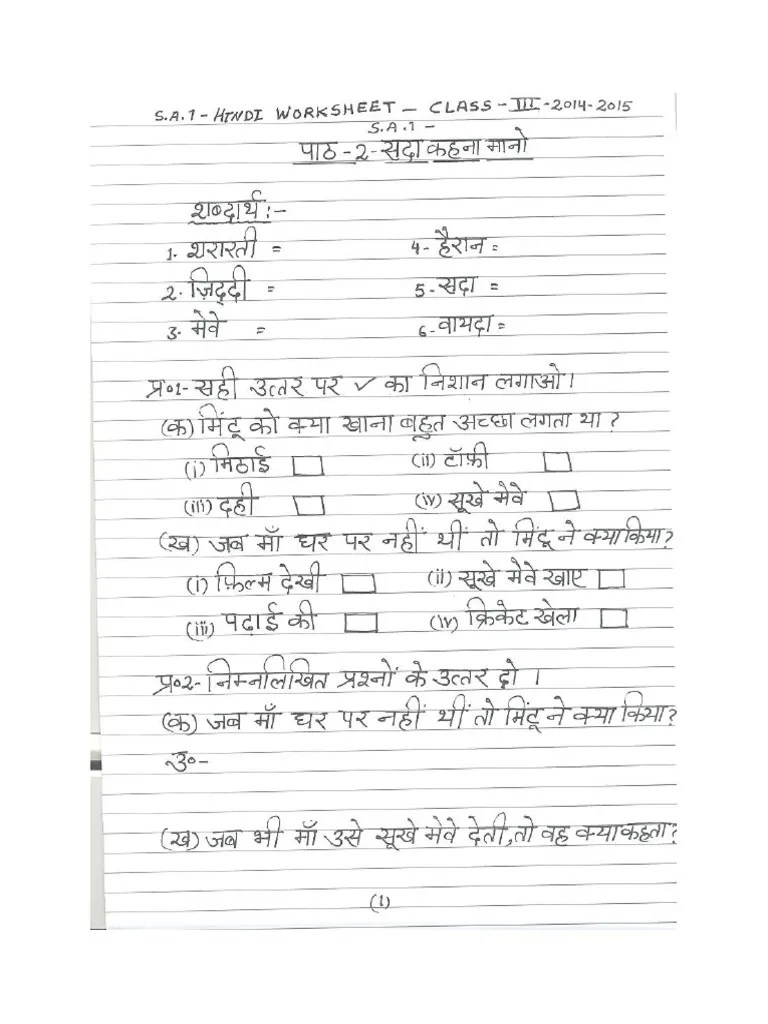 S.A.1 - HINDI WORKSHEET - CLASS - III - 2014-2015
S.A.1 -
पाठ - 2 - सदा कहना मानो
शब्दार्थ :-
1. शरारती = 4- हैरान =
2. ज़िद्दी = 5- सदा =
3. मेवे = 6- वायदा =
प्र०1- सही उत्तर पर ✓ का निशान लगाओ।
(क) मिंटू को क्या खाना बहुत अच्छा लगता था ?
(i) मिठाई (ii) टॉफ़ी
(iii) दही (iv) सूखे मेवे
(ख) जब माँ घर पर नहीं थीं तो मिंटू ने क्या किया?
(i) फ़िल्म देखी (ii) सूखे मेवे खाए
(iii) पढ़ाई की (iv) क्रिकेट खेला
प्र०2- निम्नलिखित प्रश्नों के उत्तर दो ।
(क) जब माँ घर पर नहीं थीं तो मिंटू ने क्या किया?
उ०-
(ख) जब भी माँ उसे सूखे मेवे देती, तो वह क्या कहता?
(1)